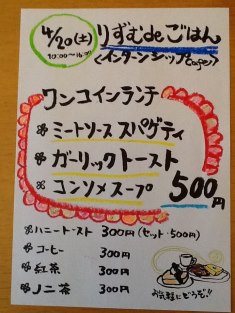 4/20(土)
10:00～16:00
りずむdeごはん
<インターンシップcafe>
ワンコインランチ
ミートソース スパゲティ
ガーリックトースト
コンソメスープ
500円
ハニートースト 300円(セット・500円)
コーヒー 300円
紅茶 300円
ノニ茶 300円
お気軽にどうぞ!!